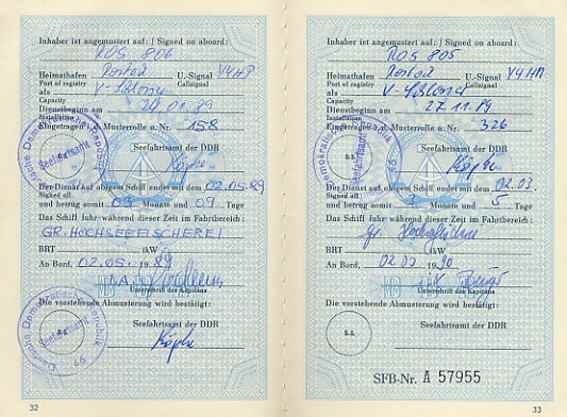 Inhaber ist angemustert auf: / Signed on aboard:
ROS 806
Heimathafen Rostock U.-Signal Y4HP
Port of registry Callsignal
als
Capacity
Dienstbeginn am 01.89
Installation
Eingetragen i. d. Musterrolle u. Nr. 158
Seefahrtsamt der DDR
Der Dienst auf obigem Schiff endet mit dem 02.05.89
Signed off
und betrug somit 03 Monate und 09 Tage
Das Schiff fuhr während dieser Zeit im Fahrtbereich:
GR. HOCHSEEFISCHEREI
BRT kW
An Bord, 02.05. 19 89
Unterschrift des Kapitäns
Die vorstehende Abmusterung wird bestätigt:
Seefahrtsamt der DDR
Deutsche Demokratische Republik
Seefahrtsamt
46
32
Inhaber ist angemustert auf: / Signed on aboard:
ROS 805
Heimathafen Rostock U.-Signal
Port of registry Callsignal
als
Capacity
Dienstbeginn am 27.11.89
Installation
Eingetragen i. d. Musterrolle u. Nr. 326
S.S.
Seefahrtsamt der DDR
Der Dienst auf obigem Schiff endet mit dem 02.03.
Signed off
und betrug somit 3 Monate und 5 Tage
Das Schiff fuhr während dieser Zeit im Fahrtbereich:
BRT kW
An Bord, 02.03 19 90
Unterschrift des Kapitäns
Die vorstehende Abmusterung wird bestätigt:
S.S.
Seefahrtsamt der DDR
SFB-Nr. A 57955
33